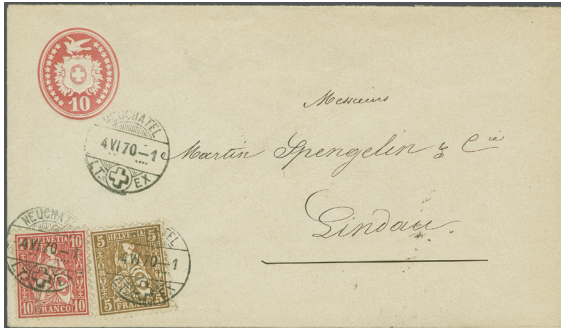 10
NEUCHATEL
4 VI 70-1
LT. EX
Messieurs
Martin Spengelin & Cie
Lindau
NEUCHATEL
4 VI 70-1
10 HELVETIA 10
10 FRANCO 10
5 HELVETIA 5
5 FRANCO 5
4 VI 70-1